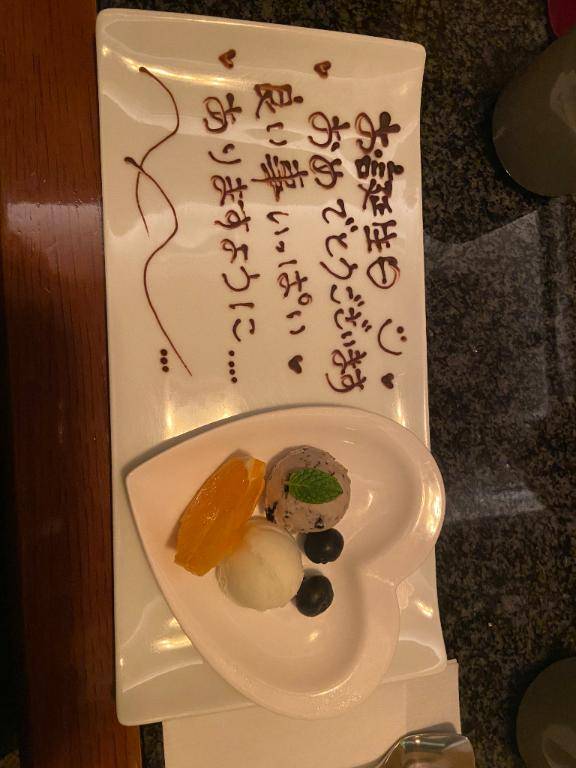 お誕生日
おめでとうございます
良い事いっぱい
ありますように....